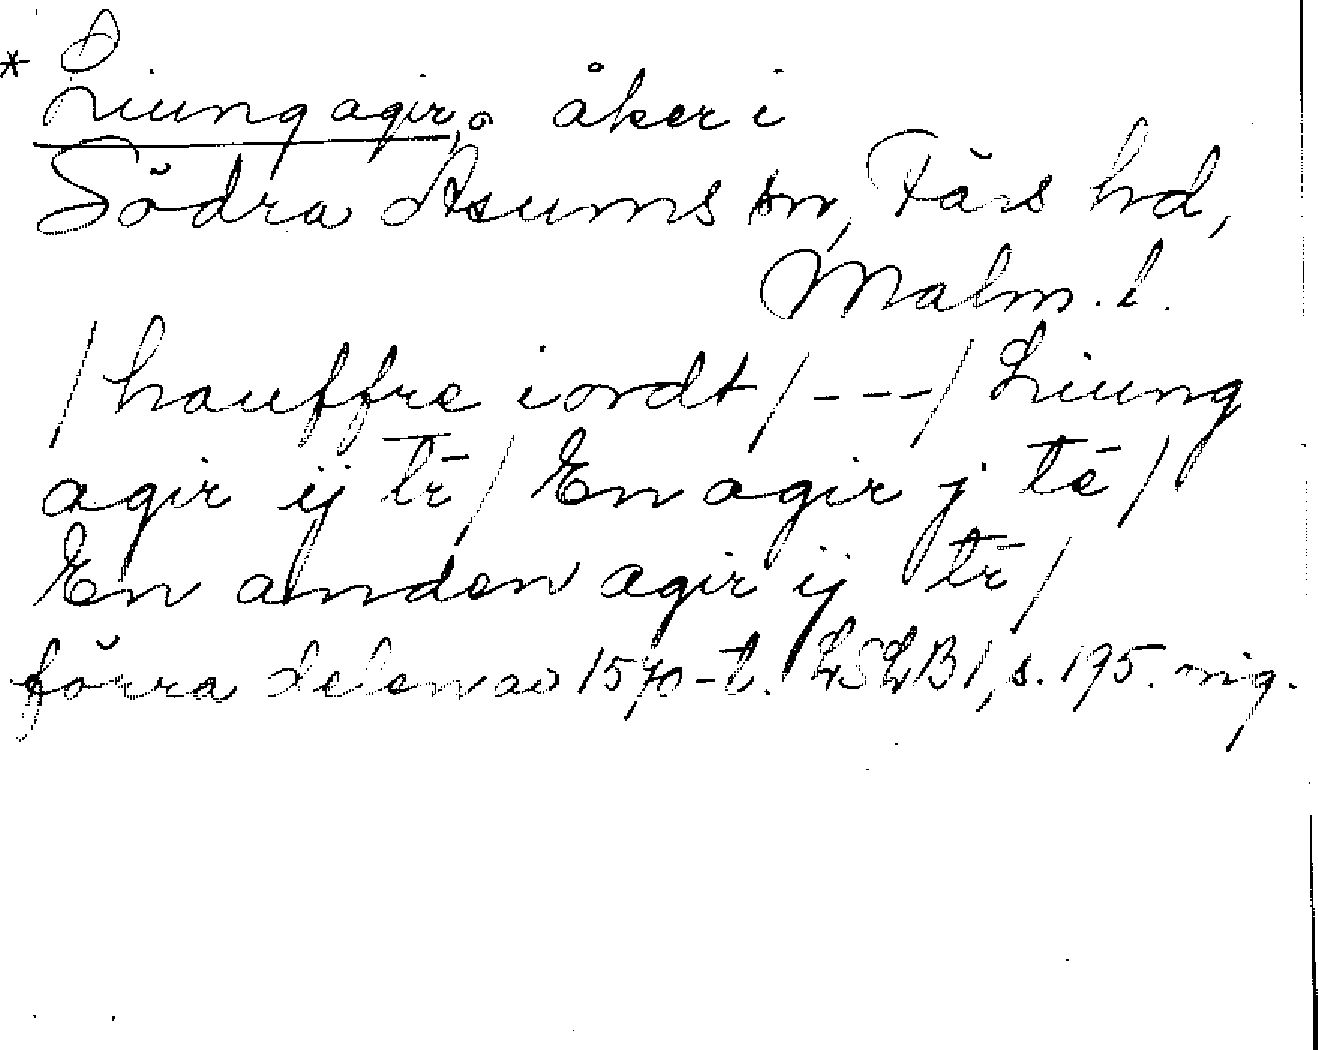 * Liung agir, åker i
Södra Åsums sn, Färs hd,
Malm. l.
/hauffre iordt/---/Liung
agir ij tr̄/ En agir j tē/
En anden agir ij tr̄/
förra delen av 1570-t. LSLB 1, s. 195. nig.